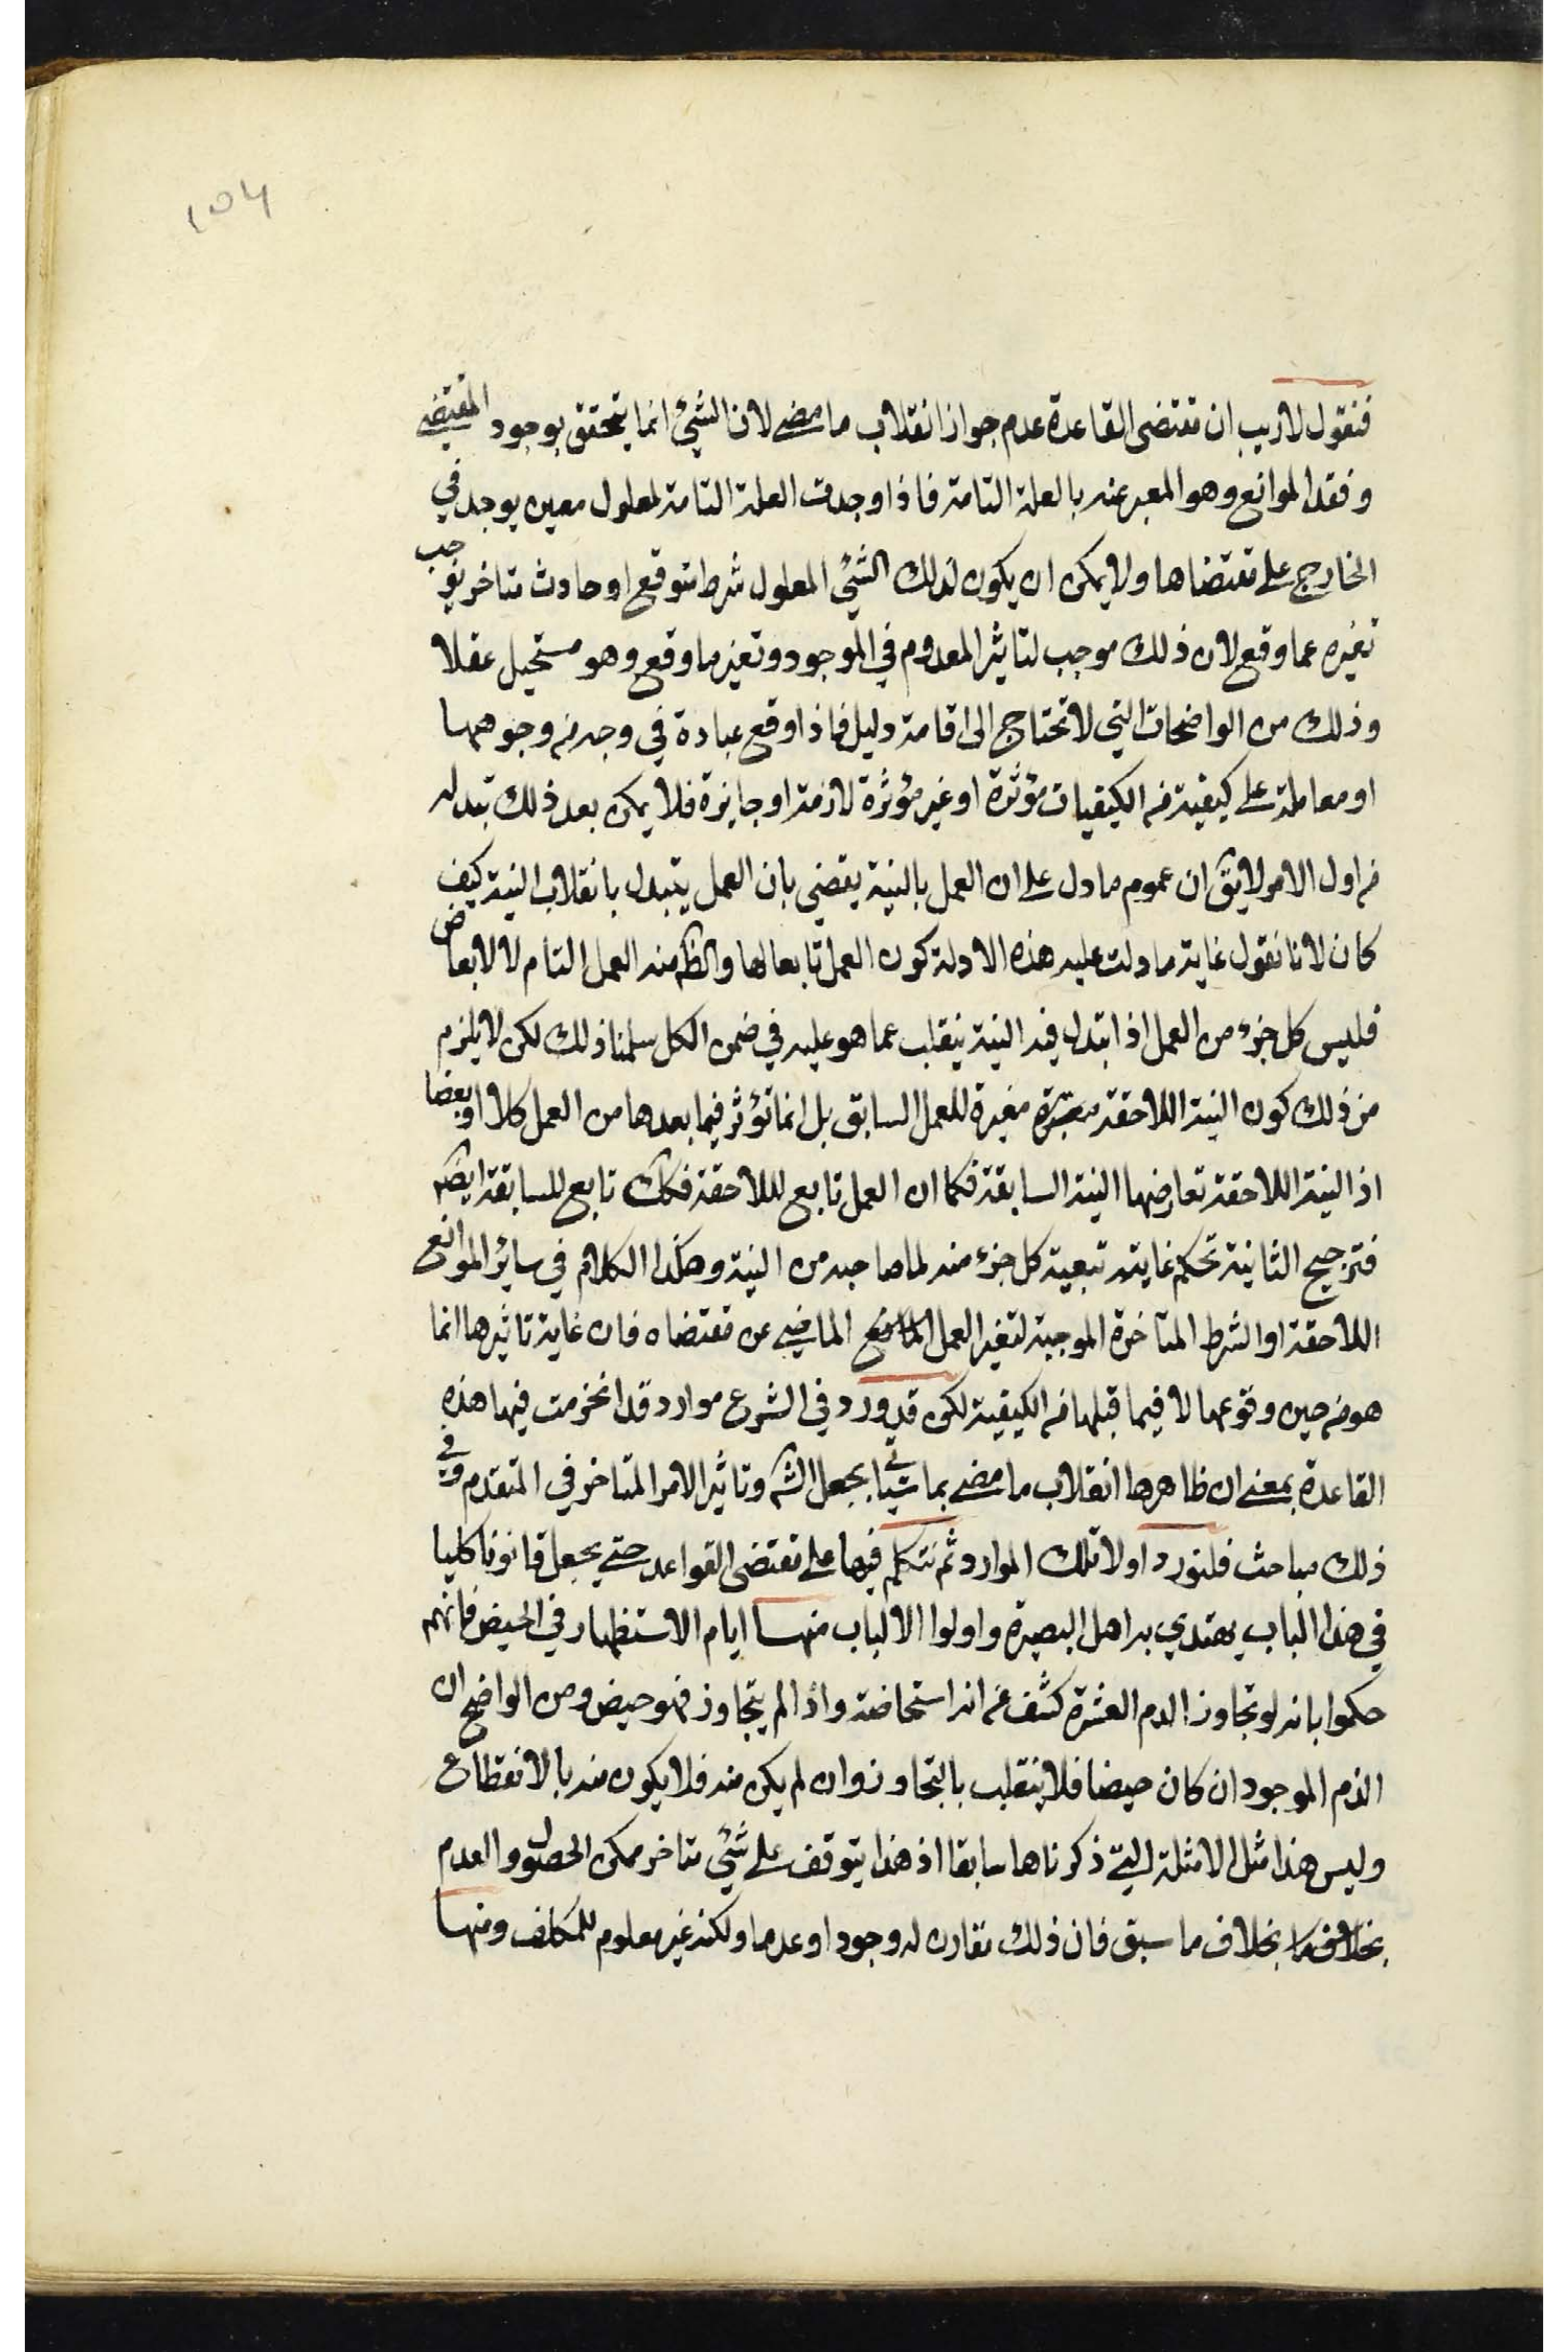 ١٥٤
فنقول لاريب ان مقتضى القاعدة عدم جواز انقلاب ما مضى لان الشئ انما يتحقق بوجود المقتضى
وفقد الموانع وهو المعبر عنه بالعلة التامة فاذا وجدت العلة التامة لمعلول معين يوجد في
الخارج على مقتضاها ولا يمكن ان يكون لذلك الشئ المعلول شرط متوقع او حادث متاخر يوجب
تغيره عما وقع لان ذلك موجب لتاثير المعدوم في الموجود وتغير ما وقع وهو مستحيل عقلا
وذلك من الواضحات التي لا تحتاج الى اقامة دليل فاذا وقع عبادة في وجه من وجوهها
او معاملة على كيفية من الكيفيات مؤثرة او غير مؤثرة لازمة او جايزة فلا يمكن بعد ذلك تبدله
من اول الامر لا يق ان عموم ما دل على ان العمل بالنية يقضي بان العمل يتبدل بانقلاب النية كيف
كان لانا نقول غاية ما دلت عليه هذه الادلة كون العمل تابعا لها والظ منه العمل التام لا الابعاض
فليس كل جزء من العمل اذا تبدل فيه النية ينقلب عما هو عليه في ضمن الكل سلمنا ذلك لكن لا يلزم
من ذلك كون النية اللاحقة مغيرة للعمل السابق بل انما تؤثر فيما بعدها من العمل كلا او بعضا
اذ النية اللاحقة تعارضها النية السابقة فكما ان العمل تابع لللاحقة فكك تابع للسابقة ايض
فترجيح الثانية تحكم غايته تبعية كل جزء منه لما صاحبه من النية وهكذا الكلام في ساير الموانع
اللاحقة او الشرط المتاخرة الموجبة لتغير العمل الماضي عن مقتضاه فان غاية تاثيرها انما
هو من حين وقوعها لا فيما قبلها من الكيفية لكن قد ورد في الشرع موارد قد انخرمت فيها هذه
القاعدة بمعنى ان ظاهرها انقلاب ما مضى بما ياتي بجعل الش وتاثير الامر المتاخر في المتقدم وفي
ذلك مباحث فلنورد اولا تلك الموارد ثم نتكلم فيها على مقتضى القواعد حتى يجعل قانونا كليا
في هذا الباب يهتدي به اهل البصيرة واولوا الالباب منها ايام الاستظهار في الحيض فانهم
حكموا بانه لو تجاوز الدم العشرة كشف عن انه استحاضة واذا لم يتجاوز فهو حيض ومن الواضح ان
الدم الموجود ان كان حيضا فلا ينقلب بالتجاوز وان لم يكن منه فلا يكون منه بالانقطاع
وليس هذا مثل الامثلة التي ذكرناها سابقا اذ هذا يتوقف على شئ متاخر ممكن الحصول والعدم
بخلاف ما سبق فان ذلك مقارن له وجودا وعدما ولكنه غير معلوم للمكلف ومنها